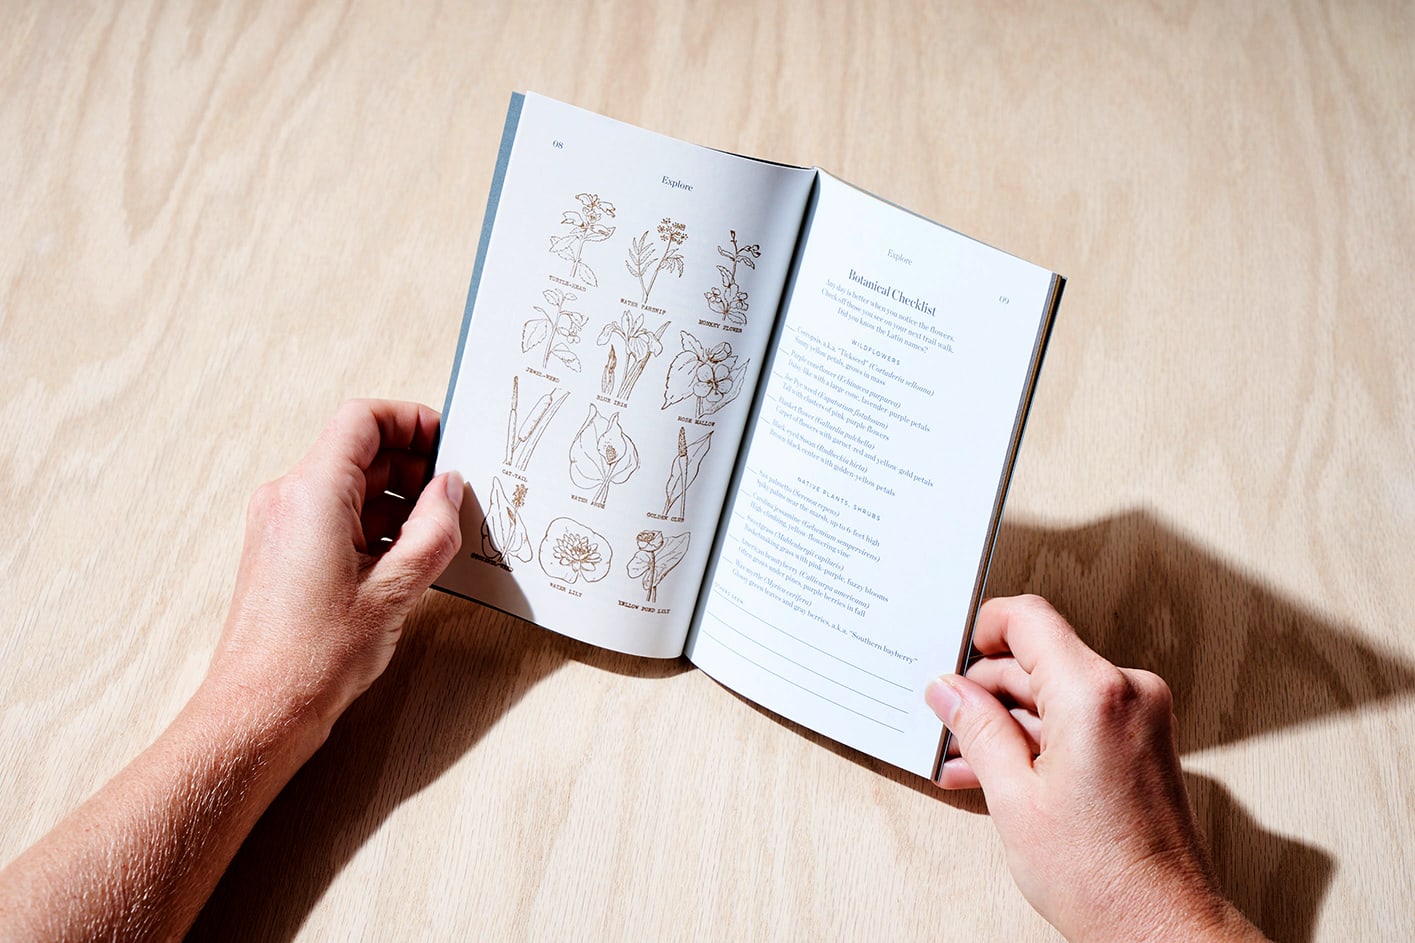 08
Explore
TURTLE-HEAD
WATER PARSNIP
MONKEY FLOWER
JEWEL-WEED
BLUE IRIS
ROSE MALLOW
CAT-TAIL
WATER ARUM
GOLDEN CLUB
WATER LILY
YELLOW POND LILY
Explore
09
Botanical Checklist
Any day is better when you notice the flowers.
Check off those you see on your next trail walk.
Did you know the Latin names?
WILDFLOWERS
Coreopsis, a.k.a. "Tickseed" (Cortaderia selloana)
Sunny yellow petals, grows in mass
Purple coneflower (Echinacea purpurea)
Daisy-like with a large cone, lavender-purple petals
Joe Pye weed (Eupatorium fistulosum)
Tall with clusters of pink-purple flowers
Blanket flower (Gallardia pulchella)
Carpet of flowers with garnet-red and yellow-gold petals
Black-eyed Susan (Rudbeckia hirta)
Brown-black center with golden-yellow petals
NATIVE PLANTS, SHRUBS
Saw palmetto (Serenoa repens)
Spiky palms near the marsh, up to 6-feet high
Carolina jessamine (Gelsemium sempervirens)
High-climbing, yellow-flowering vine
Sweetgrass (Muhlenbergii capilaris)
Basketmaking grass with pink-purple, fuzzy blooms
American beautyberry (Callicarpa americana)
Often grows under pines, purple berries in fall
Wax myrtle (Myrica cerifera)
Glossy green leaves and gray berries, a.k.a. "Southern bayberry"
OTHERS SEEN: